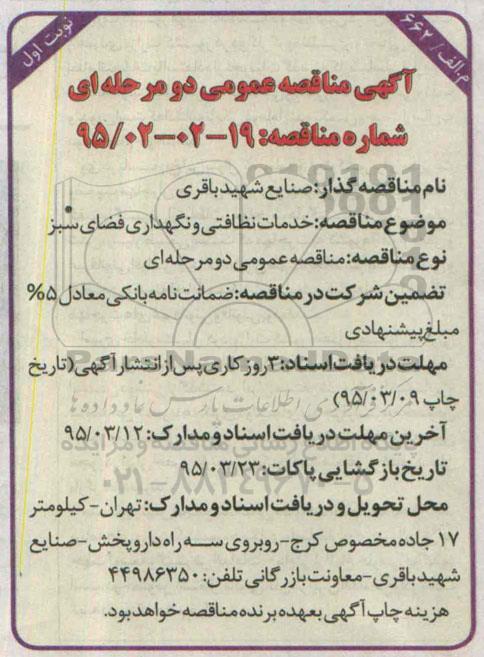 م.الف/ ۶۶۲
نوبت اول
آگهی مناقصه عمومی دو مرحله ای
شماره مناقصه: ۱۹-۰۲-۹۵/۰۲
نام مناقصه گذار: صنایع شهید باقری
موضوع مناقصه: خدمات نظافتی و نگهداری فضای سبز
نوع مناقصه: مناقصه عمومی دو مرحله ای
تضمین شرکت در مناقصه: ضمانت نامه بانکی معادل ۵%
مبلغ پیشنهادی
مهلت دریافت اسناد: ۳ روز کاری پس از انتشار آگهی (تاریخ
چاپ ۹۵/۰۳/۰۹)
آخرین مهلت دریافت اسناد و مدارک: ۹۵/۰۳/۱۲
تاریخ بازگشایی پاکات: ۹۵/۰۳/۲۳
محل تحویل و دریافت اسناد و مدارک: تهران - کیلومتر
۱۷ جاده مخصوص کرج - روبروی سه راه داروپخش - صنایع
شهید باقری - معاونت بازرگانی تلفن: ۴۴۹۸۶۳۵۰
هزینه چاپ آگهی بعهده برنده مناقصه خواهد بود.